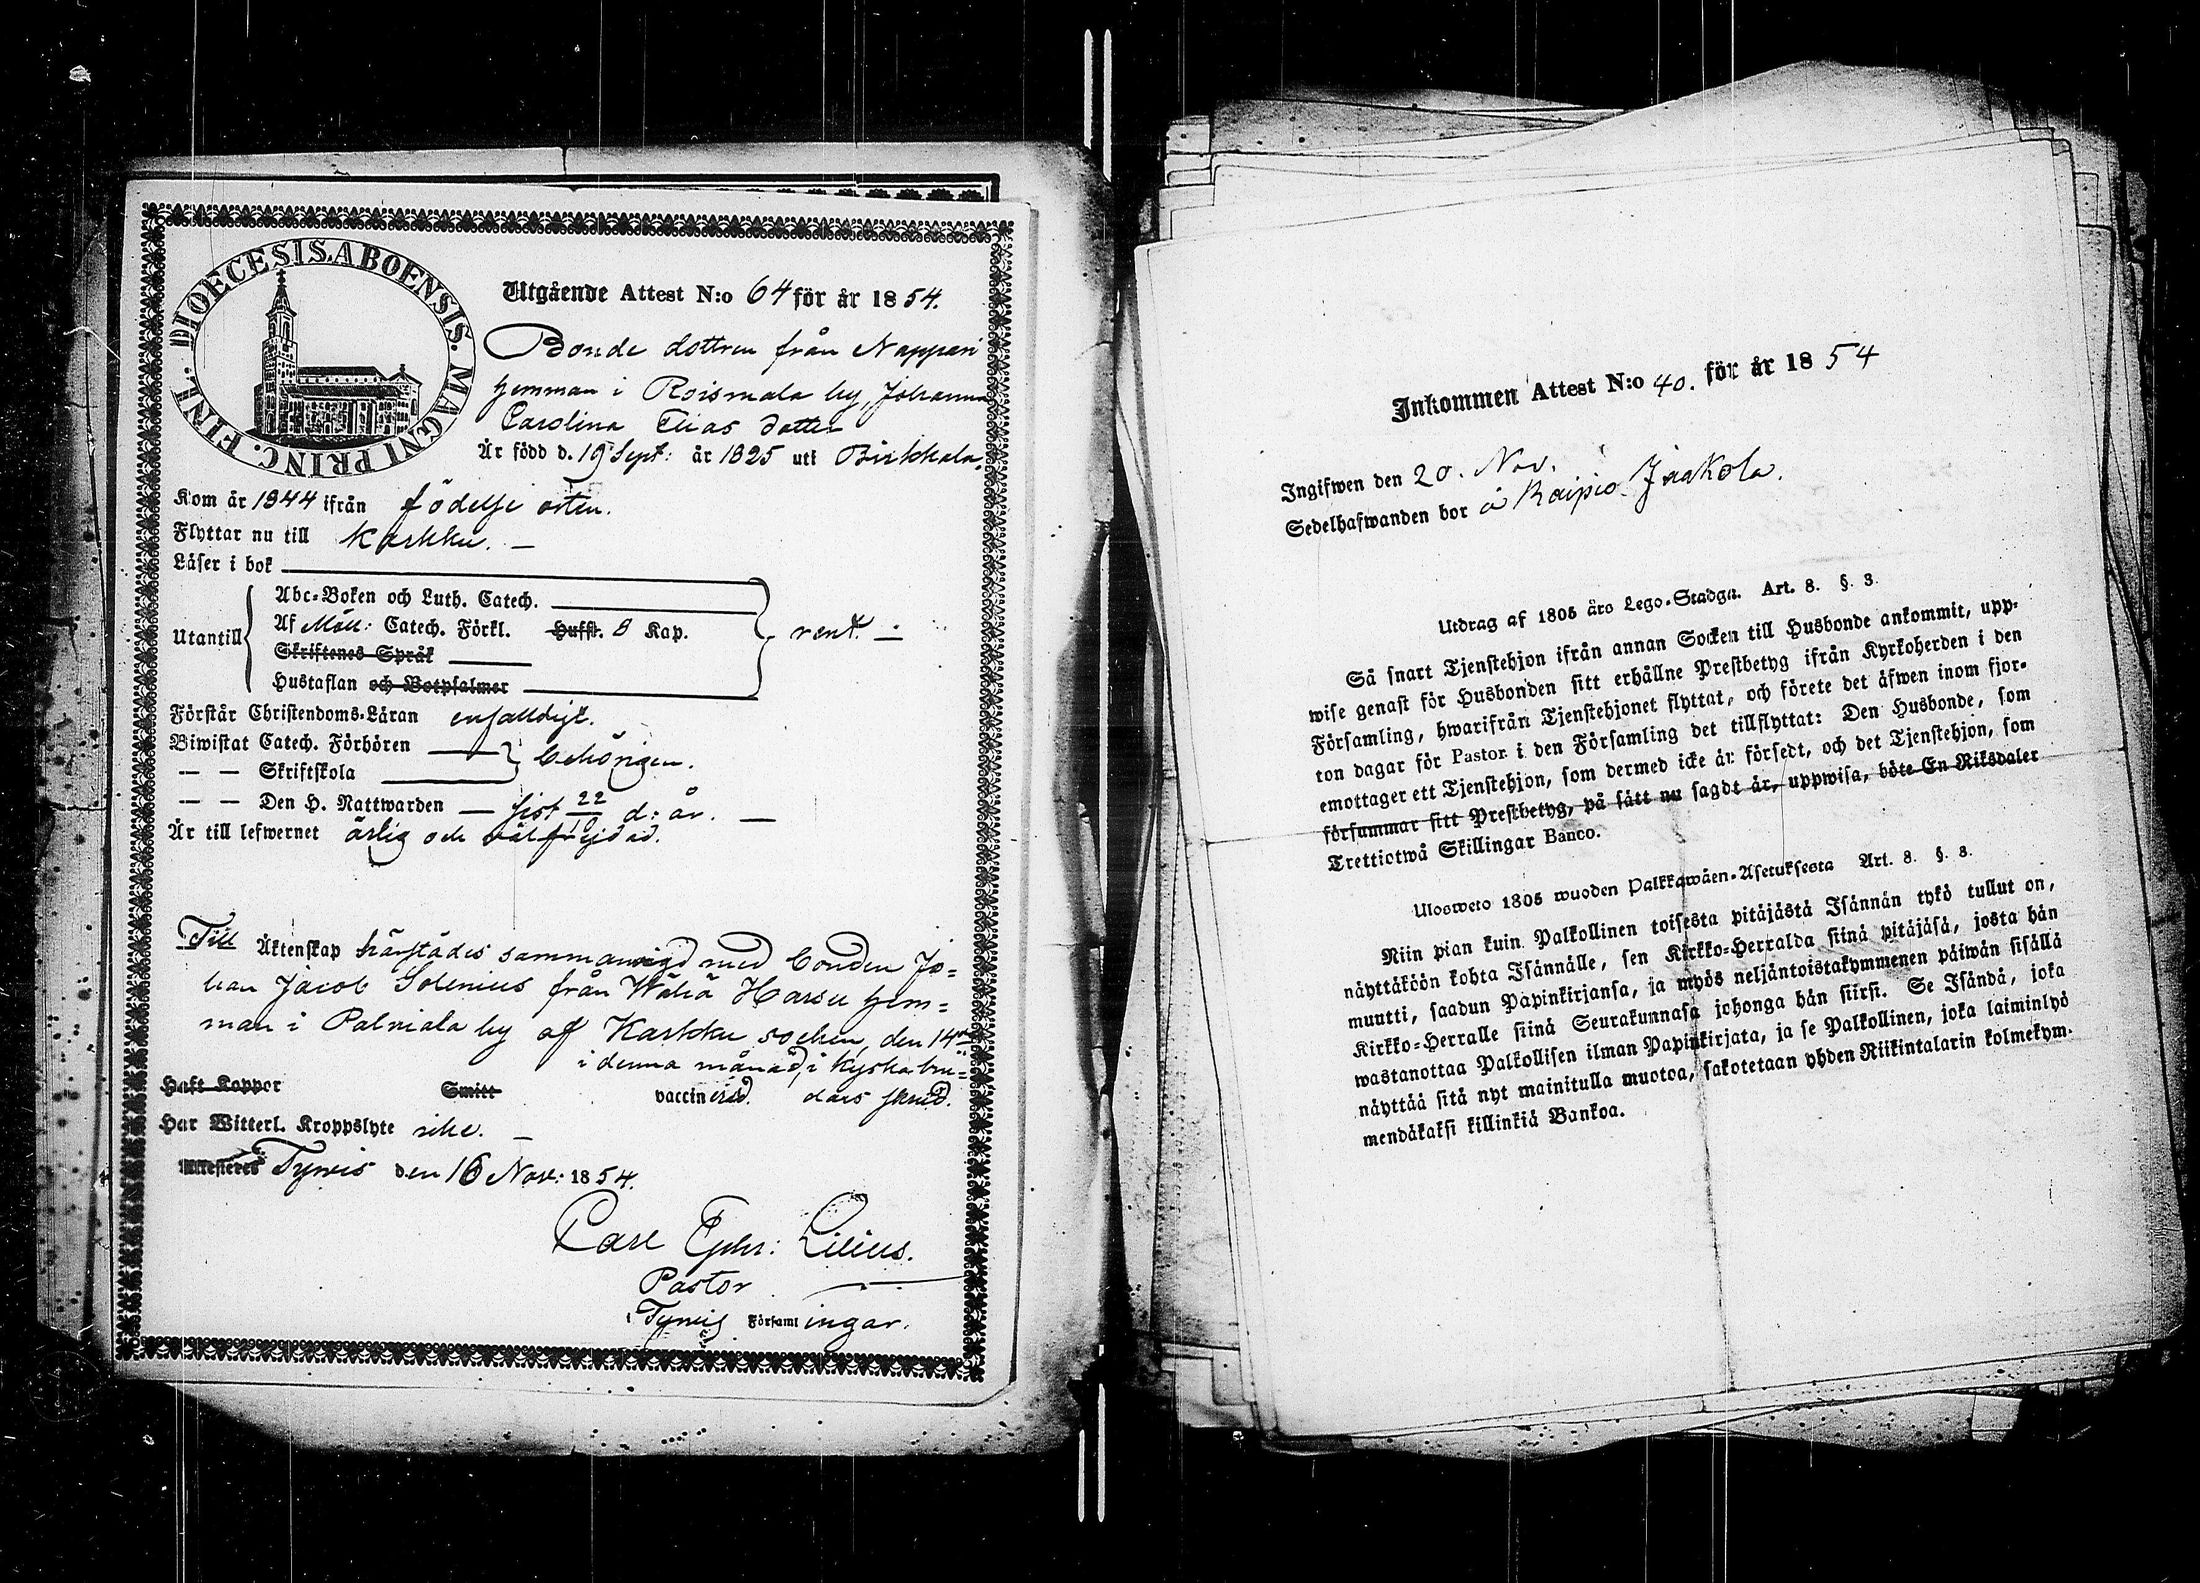 DIOECESIS. ABOENSIS. MAGNI PRINC. FINL.
Utgående Attest N:o 64 för år 1854.
Bonde dottren från Nappari
hemman i Roismala by, Johanna
Carolina Elias dotter
Är född d. 19 Sept: år 1825 uti Birkkala.
Kom år 1844 ifrån födelse orten.
Flyttar nu till Karkku. —
Läser i bok
Abc-Boken och Luth. Catech.
Utantill Af Möll: Catech. Förkl. Hufst. 8 Kap. rent. —
Skriftenes Språk
Hustaflan och Botpsalmer
Förstår Christendoms-Läran enfalldigt.
Biwistat Catech. Förhören
— — Skriftskola behörigen.
— — Den H. Nattwarden — sist 22/10 d: år. —
Är till lefwernet ärlig och välfrejdad.
Till Äktenskap härstädes sammanvigd med bonden Jo=
han Jacob Solenius från Wähä Hassu hem=
man i Palviala by af Karkku socken, den 14de
i denna månad, i Kyrko bru=
Haft Koppor Smitt vaccinerad. dars skrud.
Har Witterl. Kroppslyte icke. —
Attesteres Tyrvis den 16 Nov: 1854.
Carl Ephr: Lilius.
Pastor
Tyrvis Församlingar.
Inkommen Attest N:o 40. för år 1854
Ingifwen den 20. Nov.
Sedelhafwanden bor å Kaipio Jaakola.
Utdrag af 1805 års Lego-Stadga. Art. 8. §. 3.
Så snart Tjenstehjon ifrån annan Socken till Husbonde ankommit, upp-
wise genast för Husbonden sitt erhållne Prestbetyg ifrån Kyrkoherden i den
Församling, hwarifrån Tjenstehjonet flyttat, och förete det äfwen inom fjor-
ton dagar för Pastor i den Församling det tillflyttat: Den Husbonde, som
emottager ett Tjenstehjon, som dermed icke är försedt, och det Tjenstehjon, som
försummar sitt Prestbetyg, på sätt nu sagdt är, uppwisa, böte En Riksdaler
Trettiotwå Skillingar Banco.
Ulosweto 1805 wuoden Palkkawäen-Asetuksesta Art. 8. §. 3.
Niin pian kuin Palkollinen toisesta pitäjästä Isännän tykö tullut on,
näyttäköön kohta Isännälle, sen Kirkko-Herralda siinä pitäjäsä, josta hän
muutti, saadun Papinkirjansa, ja myös neljäntoistakymmenen päiwän sisällä
Kirkko-Herralle siinä Seurakunnasa johonga hän siirsi. Se Isändä, joka
wastanottaa Palkollisen ilman Papinkirjata, ja se Palkollinen, joka laiminlyö
näyttää sitä nyt mainitulla muotoa, sakotetaan yhden Riikintalarin kolmekym-
mendäkaksi killinkiä Bankoa.